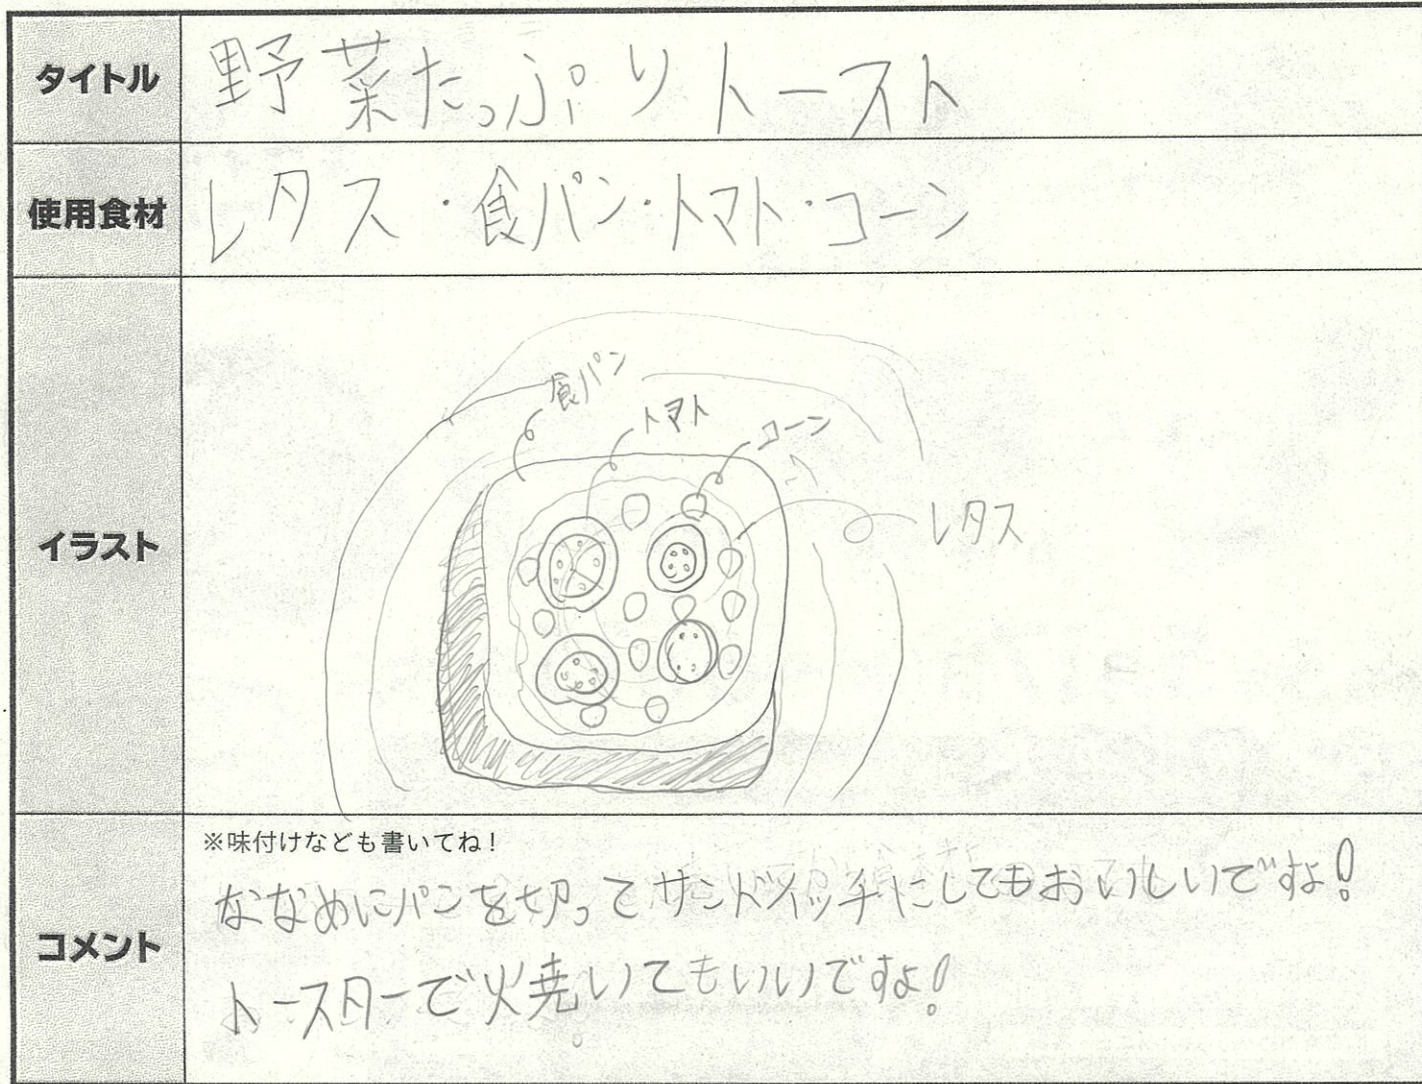 タイトル
野菜たっぷりトースト
使用食材
レタス・食パン・トマト・コーン
イラスト
食パン
トマト
コーン
レタス
コメント
※味付けなども書いてね！
ななめにパンを切ってサンドイッチにしてもおいしいですよ！
トースターで焼いてもいいですよ！